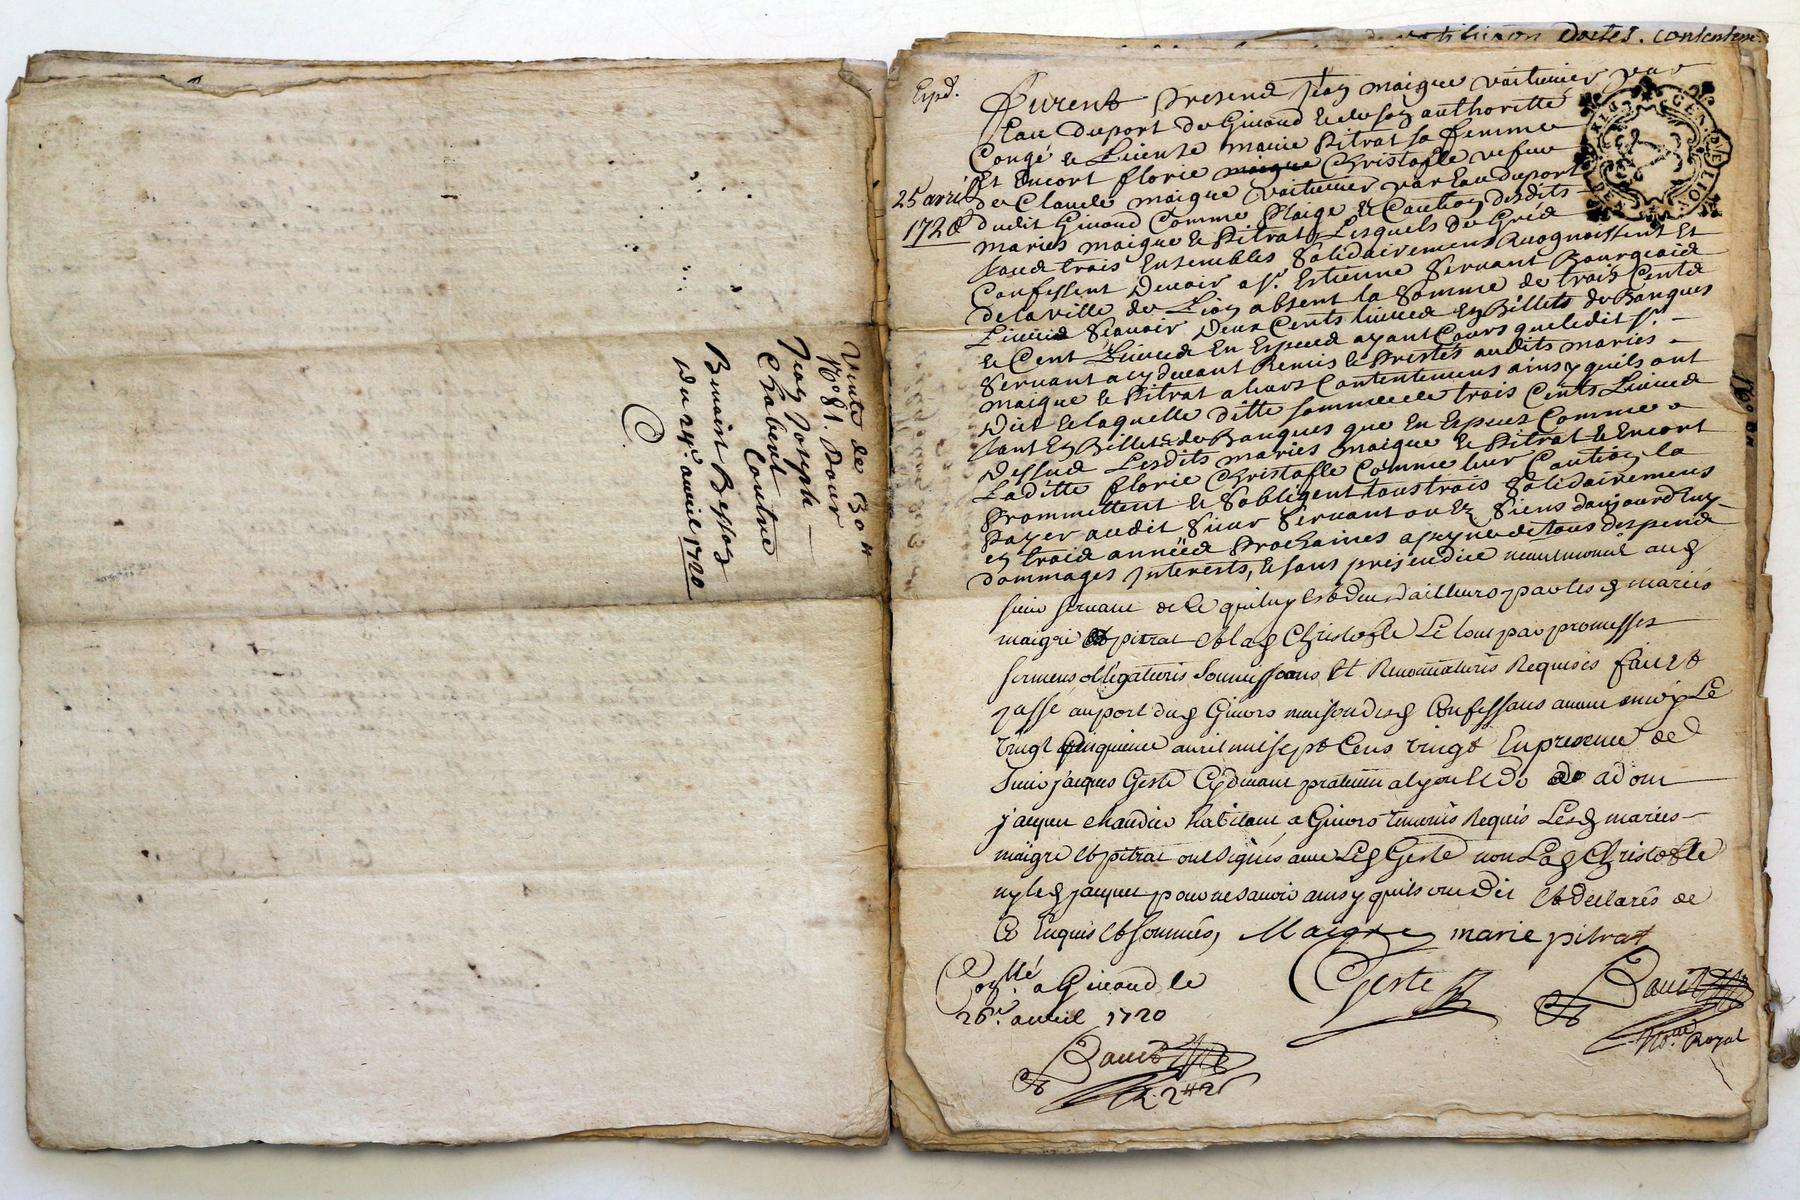 Vente de 30 ₶
No 81. Pour
Jean Joseph
Chabert
Contre
Benoist Bessos
du 24e. avril 1720
doctes. contenten
Exped.
25 avril
1720
Furent Present Jean maigre voiturier par
Eau du port de Givord & de son authoritté
Congé & License marie Pitrat sa femme
Et Encort florie maigre Christofle vefve
de Claude maigre voiturier par Eau du port
dudit Givord Comme Plaige & Caution desdits
mariés maigre & Pitrat, Lesquels de Gréd
tous trois Ensembles Solidairement Recognoissent Et
Confessent devoir a sr. Estienne Servant Bourgeois
de la ville de Lion absent la Somme de trois Cents
Livres Scavoir deux Cents livres En Billets de Banques
& Cent Livres En Especes ayant Cours que ledit sr.
Servant a cy devant Remis & Prestés audits mariés
maigre & Pitrat a leurs Contentement ainsy quils ont
Dit & laquelle ditte somme de trois Cents Livres
tant En Billets de Banques que En Especes Comme
dessus Lesdits mariés maigre & Pitrat & Encort
Laditte florie Christofle Comme leur Caution, la
Promettent & Sobligent tous trois Solidairement
Payer audit Sieur Servant ou Ez Siens daujourdhuy
en trois années Prochaines a peyne de tous despens
dommages Interests, & sans prejeudice neantmoins aud
sieur servant de Ce qui luy Est deu dailleurs par lesd mariés
maigre Et pitrat Et lad Christofle Le tout par promesses
sermens obligations soumissions Et Renonciations Requises fait &
passé au port dud Givors maison desd Confessans avant midy Le
vingt cinquieme avril mil sept Cens vingt En presence de
sieur jacques Geste Cydevant praticien a lyon Et de
jacques chaudier habitant a Givors temoins Requis Lesd mariés
maigre Et pitrat ont signés avec Led Geste non Lad Christofle
ny led jacques pour ne savoir ainsy quils ont Dit Et declarés de
Ce Enquis Et sommés, Maigre marie pitrat
Conllé a Givord le
26e. avril 1720
Geste
Royal